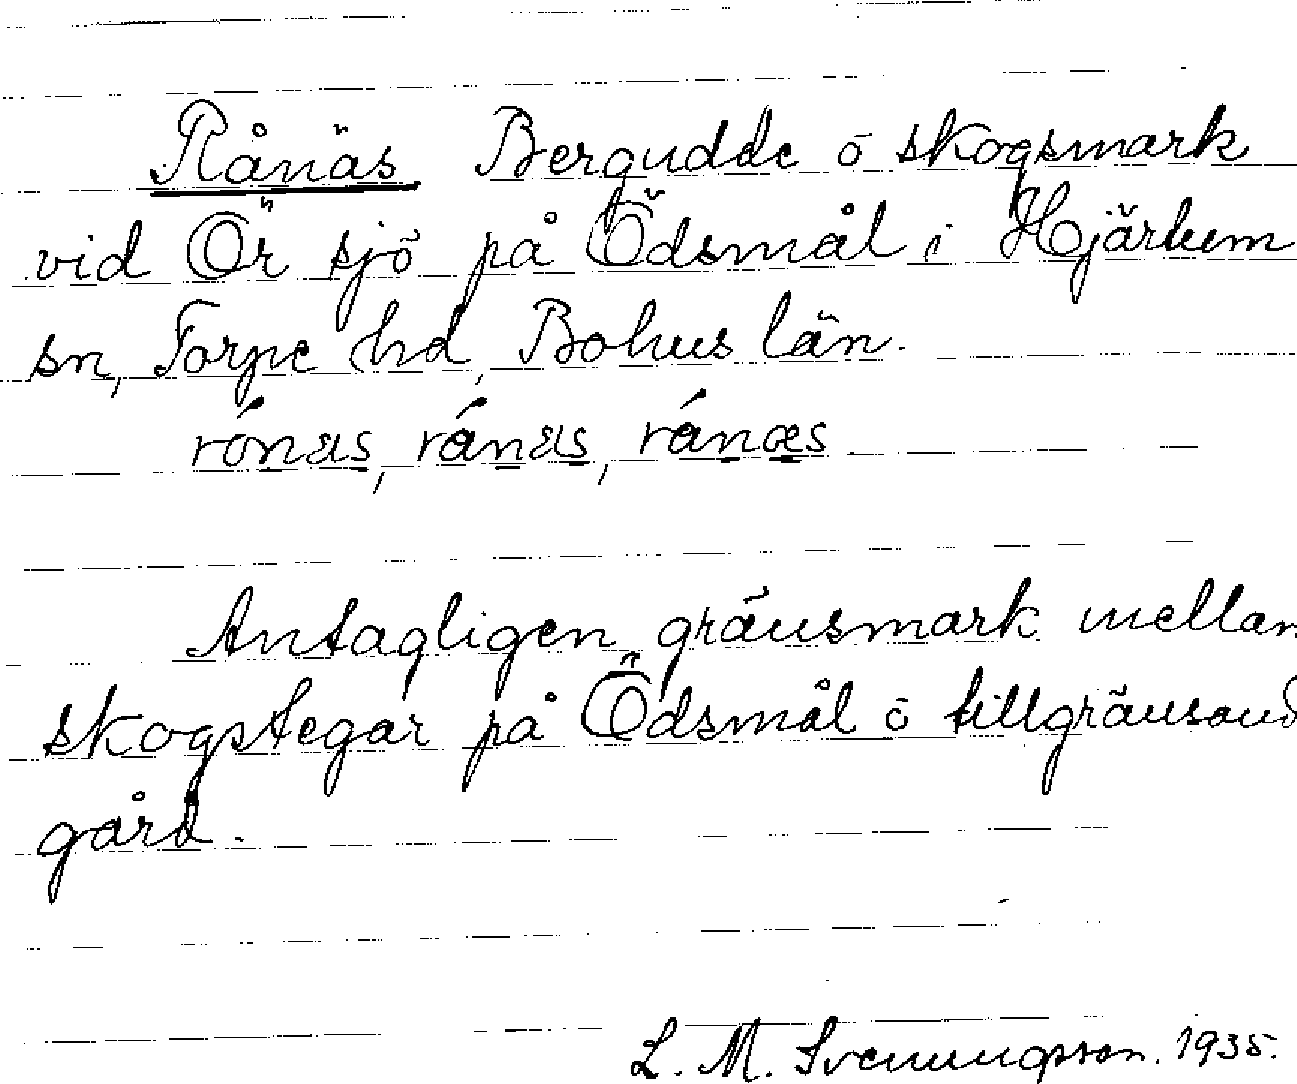 Rånäs Bergudde o skogsmark
vid Ör sjö på Ödsmål i Hjärtum
sn, Torpe hd, Bohus län.
rónæs, ránæs, ránæs
Antagligen gränsmark mellan
skogstegar på Ödsmål o tillgränsand
gård.
L. M. Svenungsson. 1935.